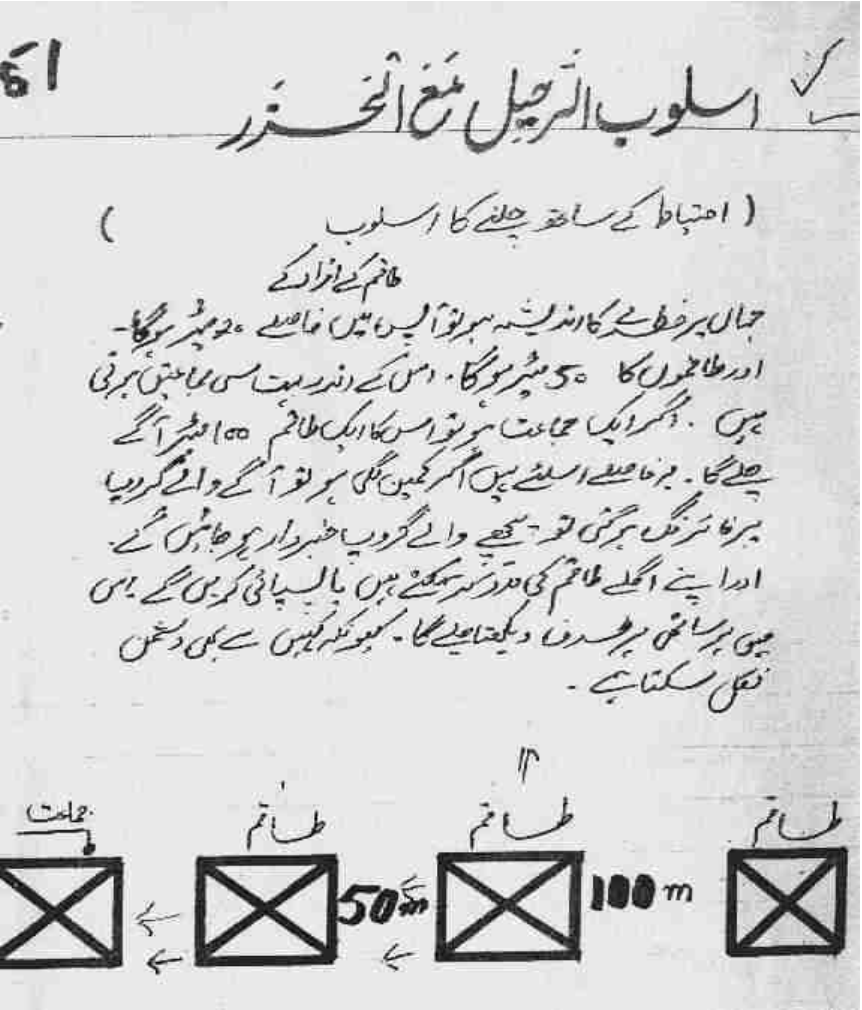 اسلوب الترحیل مع التحذر
( احتیاط کے ساتھ چلنے کا اسلوب )
طاقم کے افراد کے
جہاں پر خطرے کا اندیشہ ہو تو آپس میں فاصلے 20 میٹر ہوگا۔
اور طاقموں کا 50 میٹر ہوگا۔ اس کے اندر بہت سی جماعتیں ہوتی
ہیں۔ اگر ایک جماعت ہو تو اس کا ایک طاقم 100 میٹر آگے
چلے گا۔ یہ فاصلے اسلئے ہیں اگر کمین لگی ہو تو آگے والے گروپ
پر فائرنگ ہوگئی تو پیچھے والے گروپ خبردار ہو جائیں گے۔
اور اپنے اگلے طاقم کی مدد کر سکتے ہیں یا پسپائی کریں گے اس
میں ہر ساتھی ہر طرف دیکھتا چلے گا۔ کیونکہ کہیں سے بھی دشمن
نکل سکتا ہے۔
جماعت طاقم طاقم طاقم
50m 100m